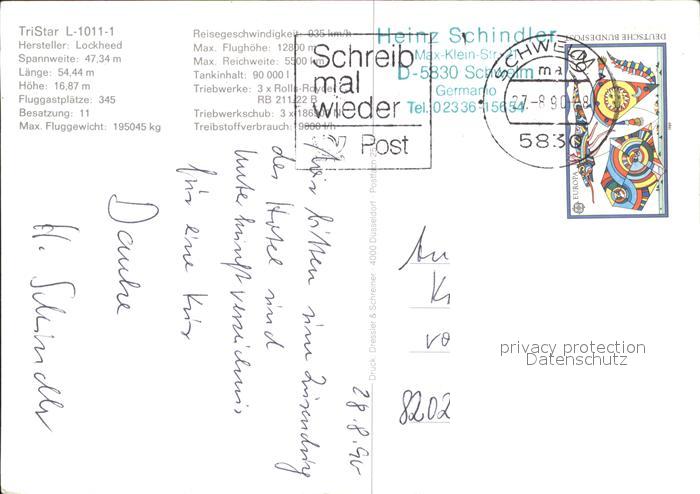 TriStar L-1011-1
Hersteller: Lockheed
Spannweite: 47,34 m
Länge: 54,44 m
Höhe: 16,87 m
Fluggastplätze: 345
Besatzung: 11
Max. Fluggewicht: 195045 kg
Reisegeschwindigkeit: 935 km/h
Max. Flughöhe: 12800 m
Max. Reichweite: 5500 km
Tankinhalt: 90 000 l
Triebwerke: 3 x Rolls-Royce
RB 211/22 B
Triebwerkschub: 3 x
Treibstoffverbrauch: 9000 l/h
Heinz Schindler
Max-Klein-Str.
D-5830 Schwelm
Germany
Tel. 02336-15654
Schreib
mal
wieder
Post
SCHWELM
ma
27-8.90-18
5830
DEUTSCHE BUNDESPOST
EUROPA
28.8.90
Wir bitten um Zusendung
des Hotel und
Unterkunftverzeichnis
für eine Kur
Danke
H. Schindler
Druck: Dressler & Schreiner · 4000 Düsseldorf · Postfach
An
K
vo
8202
privacy protection
Datenschutz